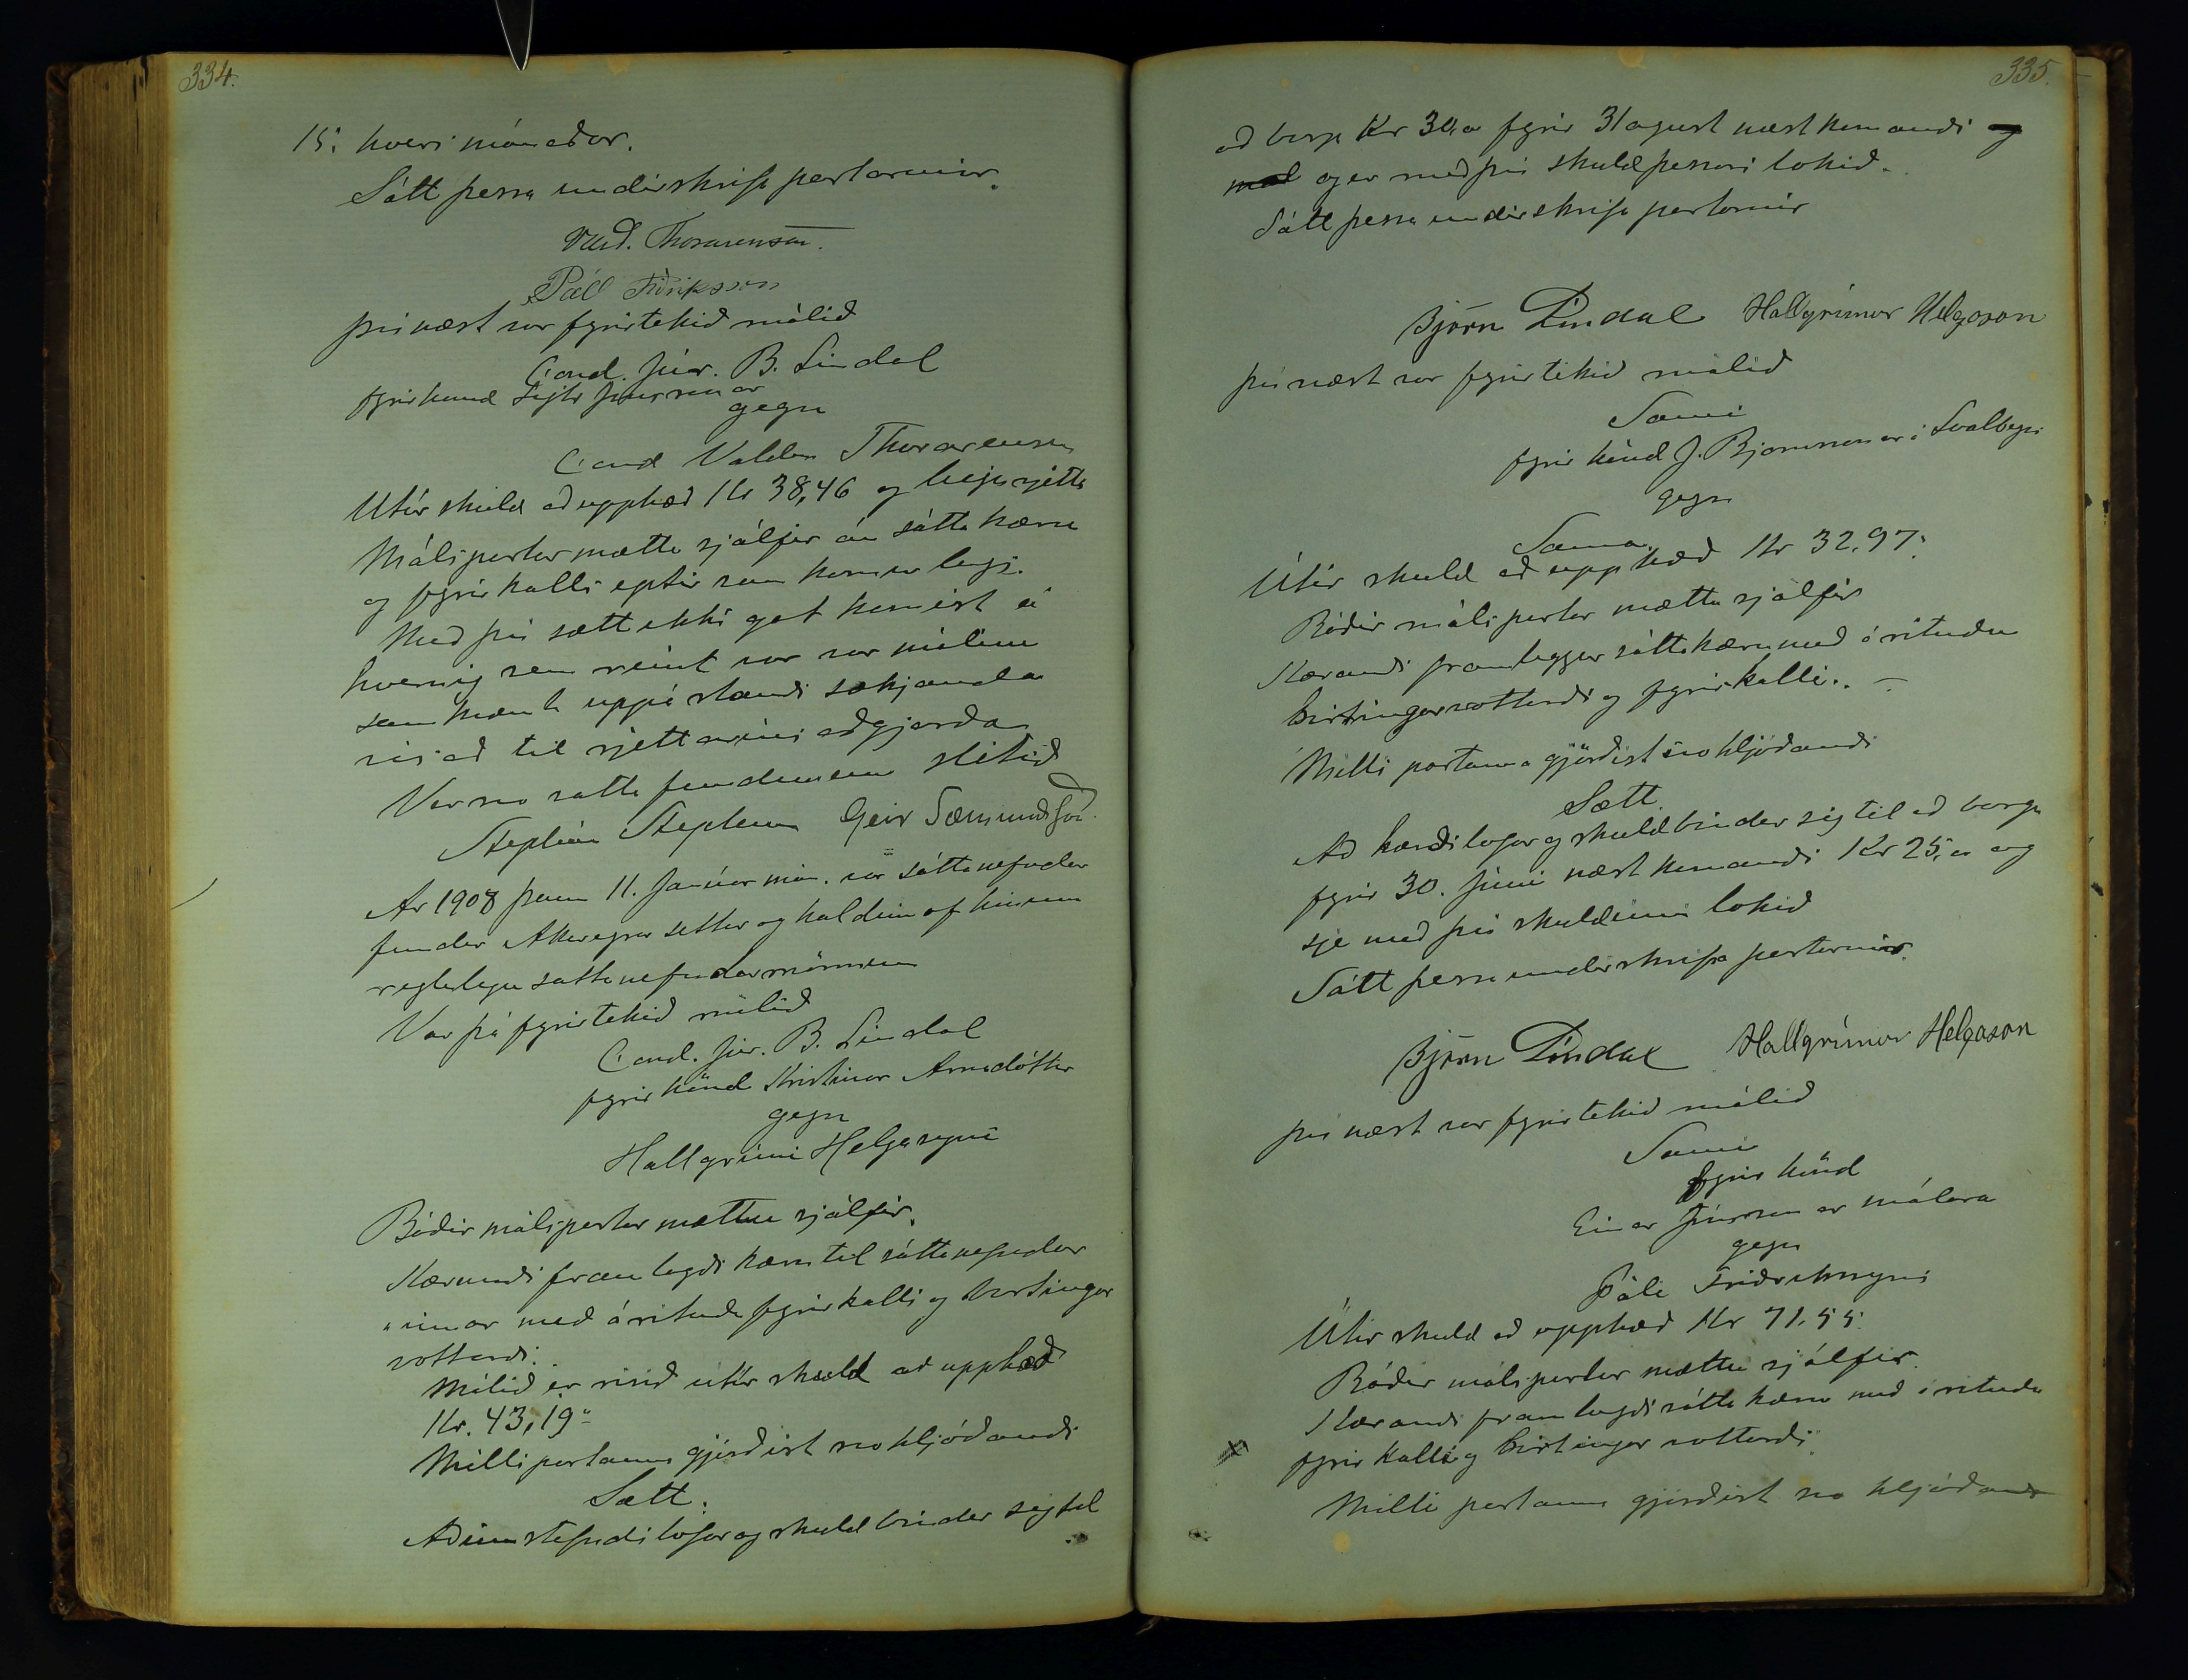 334.
15. hvers mánaðar.
Sátt þessa undirskrifa partarnir.
Vald. Thorarensen.
Páll Friðriksson
því næst var fyrirtekið málið
Cand. jur. B. Líndal
fyrir hönd Sigtr Jónssonar
gegn
Cand Valdem Thorarensen
Utúr skuld að upphæð Kr 38,46 og
Málspartar mættu sjálfir án sáttakæru
og fyrirkalls eptir sam komulagi.
Með því sætt ekki gat komist á
hvernig sem reint var var málinu
samkvæmt uppástandi sækjanda
vísað til rjettarins aðgjörða
Var svo sátta fundinum slitið
Stephán Stephensen Geir Sæmundsson.
Ár 1908 þann 11. Janúar mán. var sáttanefndar
fundur Akureyrar settur og haldinn af hinum
reglulegu sáttanefndarmönnum
Var þá fyrirtekið málið
Cand. jur. B. Líndal
fyrir hönd Kristínar Árnadóttur
gegn
Hallgrími Helgasyni
Báðir málspartar mættu sjálfir.
Kærandi framlagði kæru til sáttanefndar
"innar með árituðu fyrirkalli og birtingar
vottorði.
Málið er risið útúr skuld að upphæð
Kr. 43,19"
Milli partanna gjörðist svo hljóðandi
Sætt.
Að innstefndi lofar og skuldbindur sig til
335.
að borga Kr 30,00 fyrir 31 agust næstkomandi
og er með því skuld þessari lokið.
Sátt þessa undirskrifa partarnir
Björn Líndal Hallgrímur Helgason
því næst var fyrirtekið málið
Sami
fyrir hönd J. Björnssonar í Svalbarði
gegn
Sama.
Útúr skuld að upphæð Kr 32.97.
Báðir málspartar mættu sjálfir
Kærandi framleggur sáttakæru með árituðu
birtingarvottorði og fyrirkalli. —
Milli partanna gjörðist svo hljóðandi
Sætt.
Að kærði lofar og skuldbindur sig til að borga
fyrir 30. Júní næstkomandi Kr 25,00 og
sje með því skuldinni lokið
Sátt þessa undirskrifa partarnir.
Björn Líndal Hallgrímur Helgason
því næst var fyrirtekið málið
Sami
fyrir hönd
Einar Jónssonar málara
gegn
Páli Friðrikssyni
Útúr skuld að upphæð Kr 71.55.
Báðir málspartar mættu sjálfir.
Kærandi framlagði sátta kæru með árituðu
fyrirkalli og birtingar vottorði.
Milli partanna gjörðist svo hljóðandi